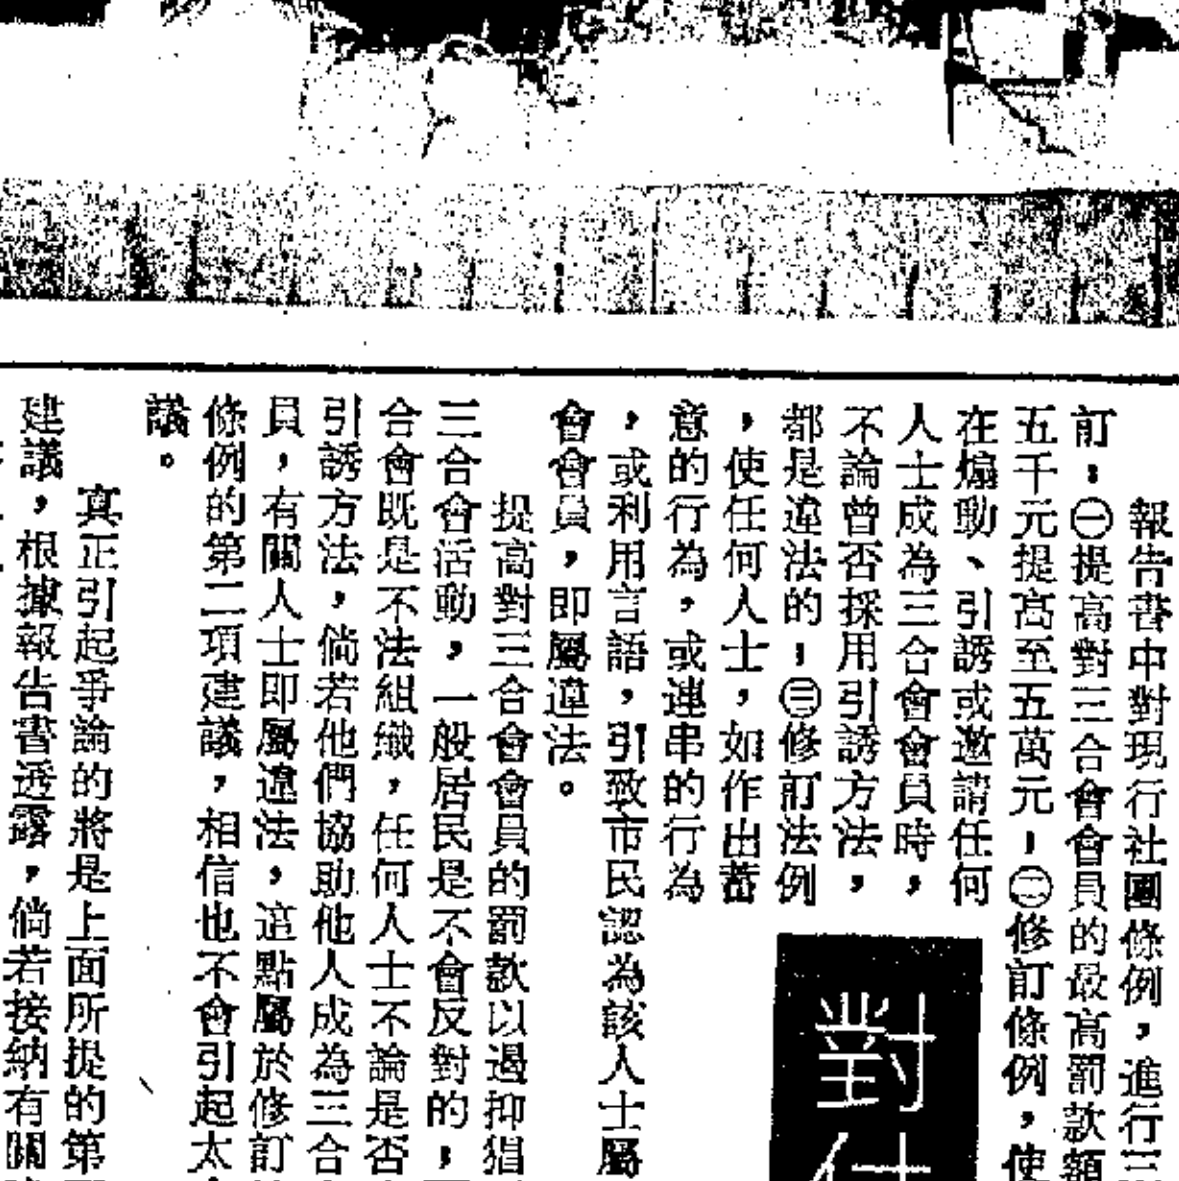 報告書中對現行社團條例，進行三
訂：㊀提高對三合會會員的最高罰款額
五千元提高至五萬元；㊁修訂條例，使
在煽動、引誘或邀請任何
人士成為三合會會員時，
不論曾否採用引誘方法，
都是違法的；㊂修訂法例
，使任何人士，如作出蓄
意的行為，或連串的行為
，或利用言語，引致市民認為該人士屬
會會員，即屬違法。
提高對三合會會員的罰款以遏抑猖
三合會活動，一般居民是不會反對的，
合會既是不法組織，任何人士不論是否
引誘方法，倘若他們協助他人成為三合
員，有關人士即屬違法，這點屬於修訂
條例的第二項建議，相信也不會引起太
議。
真正引起爭論的將是上面所提的第
建議，根據報告書透露，倘若接納有關
對